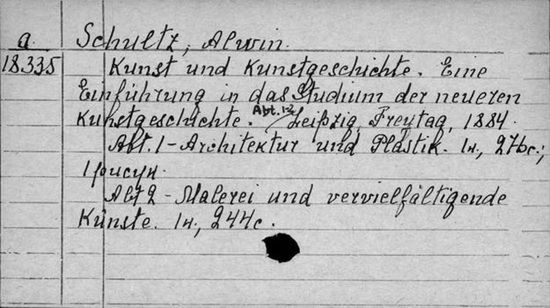 a. Schultz, Alwin.
18335 Kunst und Kunstgeschichte. Eine
Einführung in das Studium der neueren
Kunstgeschichte. Abt. 1-2 Leipzig, Freytag, 1884.
Abt. 1 - Architektur und Plastik. 1н., 276с.;
1 рисун.
Abt 2 - Malerei und vervielfältigende
Künste. 1н., 244с.